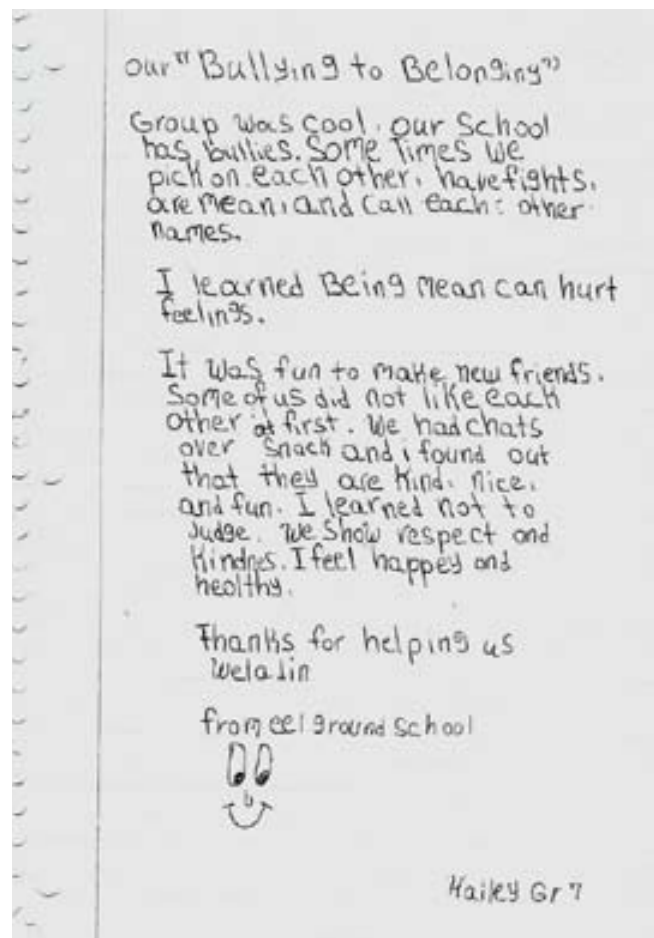 our "Bullying to Belonging"
Group was cool. our School
has bullies. Some Times we
pick on each other, have fights,
are mean, and call each other
names.
I learned Being mean can hurt
feelings.
It was fun to make new friends.
Some of us did not like each
other at first. We had chats
over snack and i found out
that they are kind, nice,
and fun. I learned not to
Judge. We show respect and
kindnes. I feel happey and
healthy.
Thanks for helping us
Weladin
from eel ground school
Hailey Gr 7